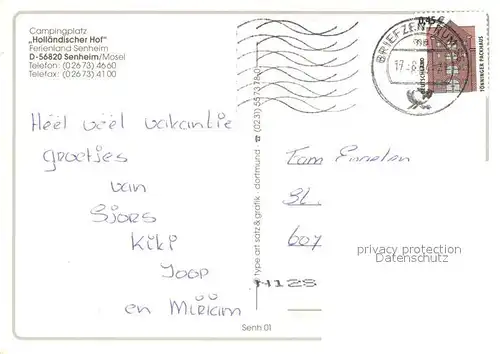 Campingplatz
„Holländischer Hof"
Ferienland Senheim
D-56820 Senheim/Mosel
Telefon: (02673) 4660
Telefax: (02673) 4100
Héél véél vakantie
groetjes
van
Sjors
Kiki
Joop
en Miriam
type art satz & grafik · dortmund ☎ (0231) 557378-0
Senh 01
BRIEFZENTRUM
0,45 €
DEUTSCHLAND
TÖNNINGER PACKHAUS
Fam
St.
607
N128
privacy protection
Datenschutz